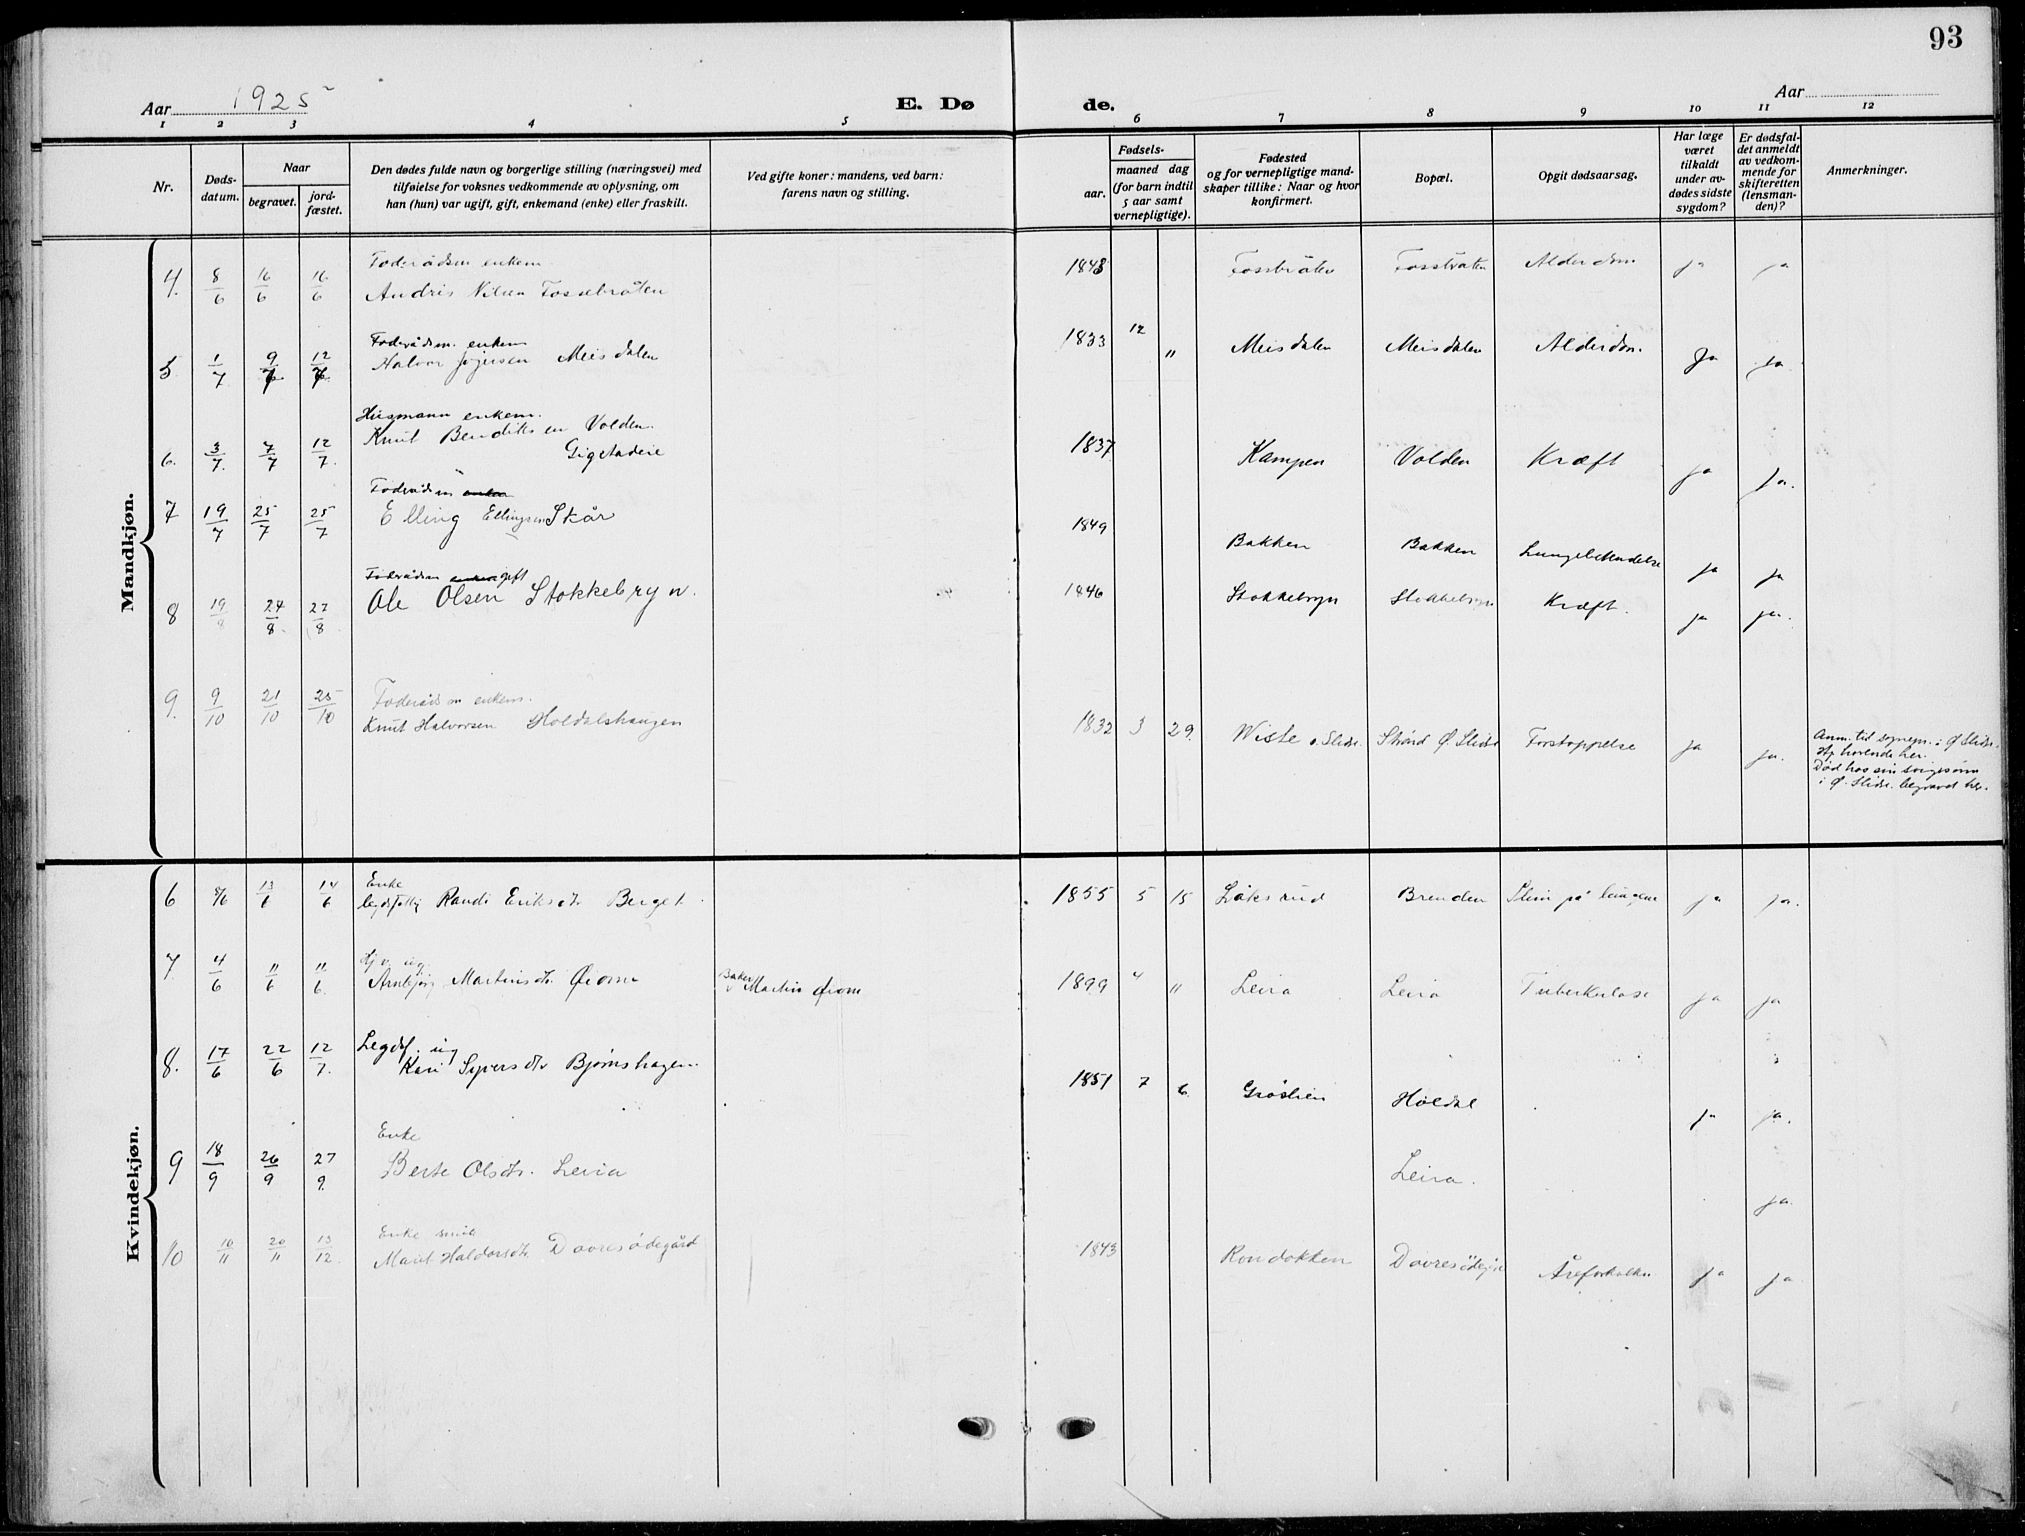 93
Aar 1925
E. Dø
de.
Aar
1 2 3 4 5 6 7 8 9 10 11 12
Nr.
Døds-
datum.
Naar
begravet.
jord-
fæstet.
Den dødes fulde navn og borgerlige stilling (næringsvei) med
tilføielse for voksnes vedkommende av oplysning, om
han (hun) var ugift, gift, enkemand (enke) eller fraskilt.
Ved gifte koner: mandens, ved barn:
farens navn og stilling.
Fødsels-
aar.
maaned dag
(for barn indtil
5 aar samt
vernepligtige).
Fødested
og for vernepligtige mand-
skaper tillike: Naar og hvor
konfirmert.
Bopæl.
Opgit dødsaarsag.
Har læge
været
tilkaldt
under av-
dødes sidste
sygdom?
Er dødsfal-
det anmeldt
av vedkom-
mende for
skifteretten
(lensman-
den)?
Anmerkninger.
Mandkjøn.
Foderådsm enkem.
4. 8/6 16/6 16/6 Andris Nilsen Fossebråten 1843 Fossbråten Fossbråten Alderdom ja ja
Foderådsm. enkem
5. 1/7 9/7 12/7 Halvor Meisdalen 1833 12 " Meisdalen Meisdalen Alderdom. Ja ja.
Husmann enkem.
6. 3/7. 7/7 12/7. Knut Bendiksen Volden. 1837 Kampen Volden Kræft ja ja.
Foderådsm
7 19/7 25/7 25/7 Elling Ellingsen Skår 1849 Bakken Bakken Lungebetendelse ja ja
Foderådsm gift
8 19/8 24/8. 27/8 Ole Olsen Stokkebryn. 1846 Stokkebryn Stokkebryn Kræft. ja ja.
Foderådsm enkem.
9. 9/10 21/10 25/10 Knut Halvorsen Holdalshaugen 1832 3 29. Wiste ø. Slidre. Strand Ø. Slidre Forstoppelse ja ja.
Anm. til sognepr. i Ø Slidre.
Hj hørende her.
Død hos sin svigersønn
i Ø. Slidre. begravet her.
Kvindekjøn.
Enke
6 8/6 13/6 14/6 legdsfattig Randi Eriksdtr Berget. 1855 5 15 Låksrud Brenden Slim på lungene ja ja.
Hjv. ug.
7. 4/6 11/6 11/6. Arnbjørg Martinsdtr. Øiom Baker Martin Øiom 1899 4 " Leira Leira Tuberkulose ja ja
Legdsf. ug
8. 17/6 22/6 12/7. Kari Syversdtr Bjørnshagen. 1851 7 6. Gråslien Holdal ja ja.
Enke
9 18/9 26/9 27/9. Berte Olsdtr. Leira Leira. ja.
Enke
10 10/11 20/11 13/12. Marit Haldorsdtr. Davresødegård 1843 Rondokken Åreforkalkn ja ja